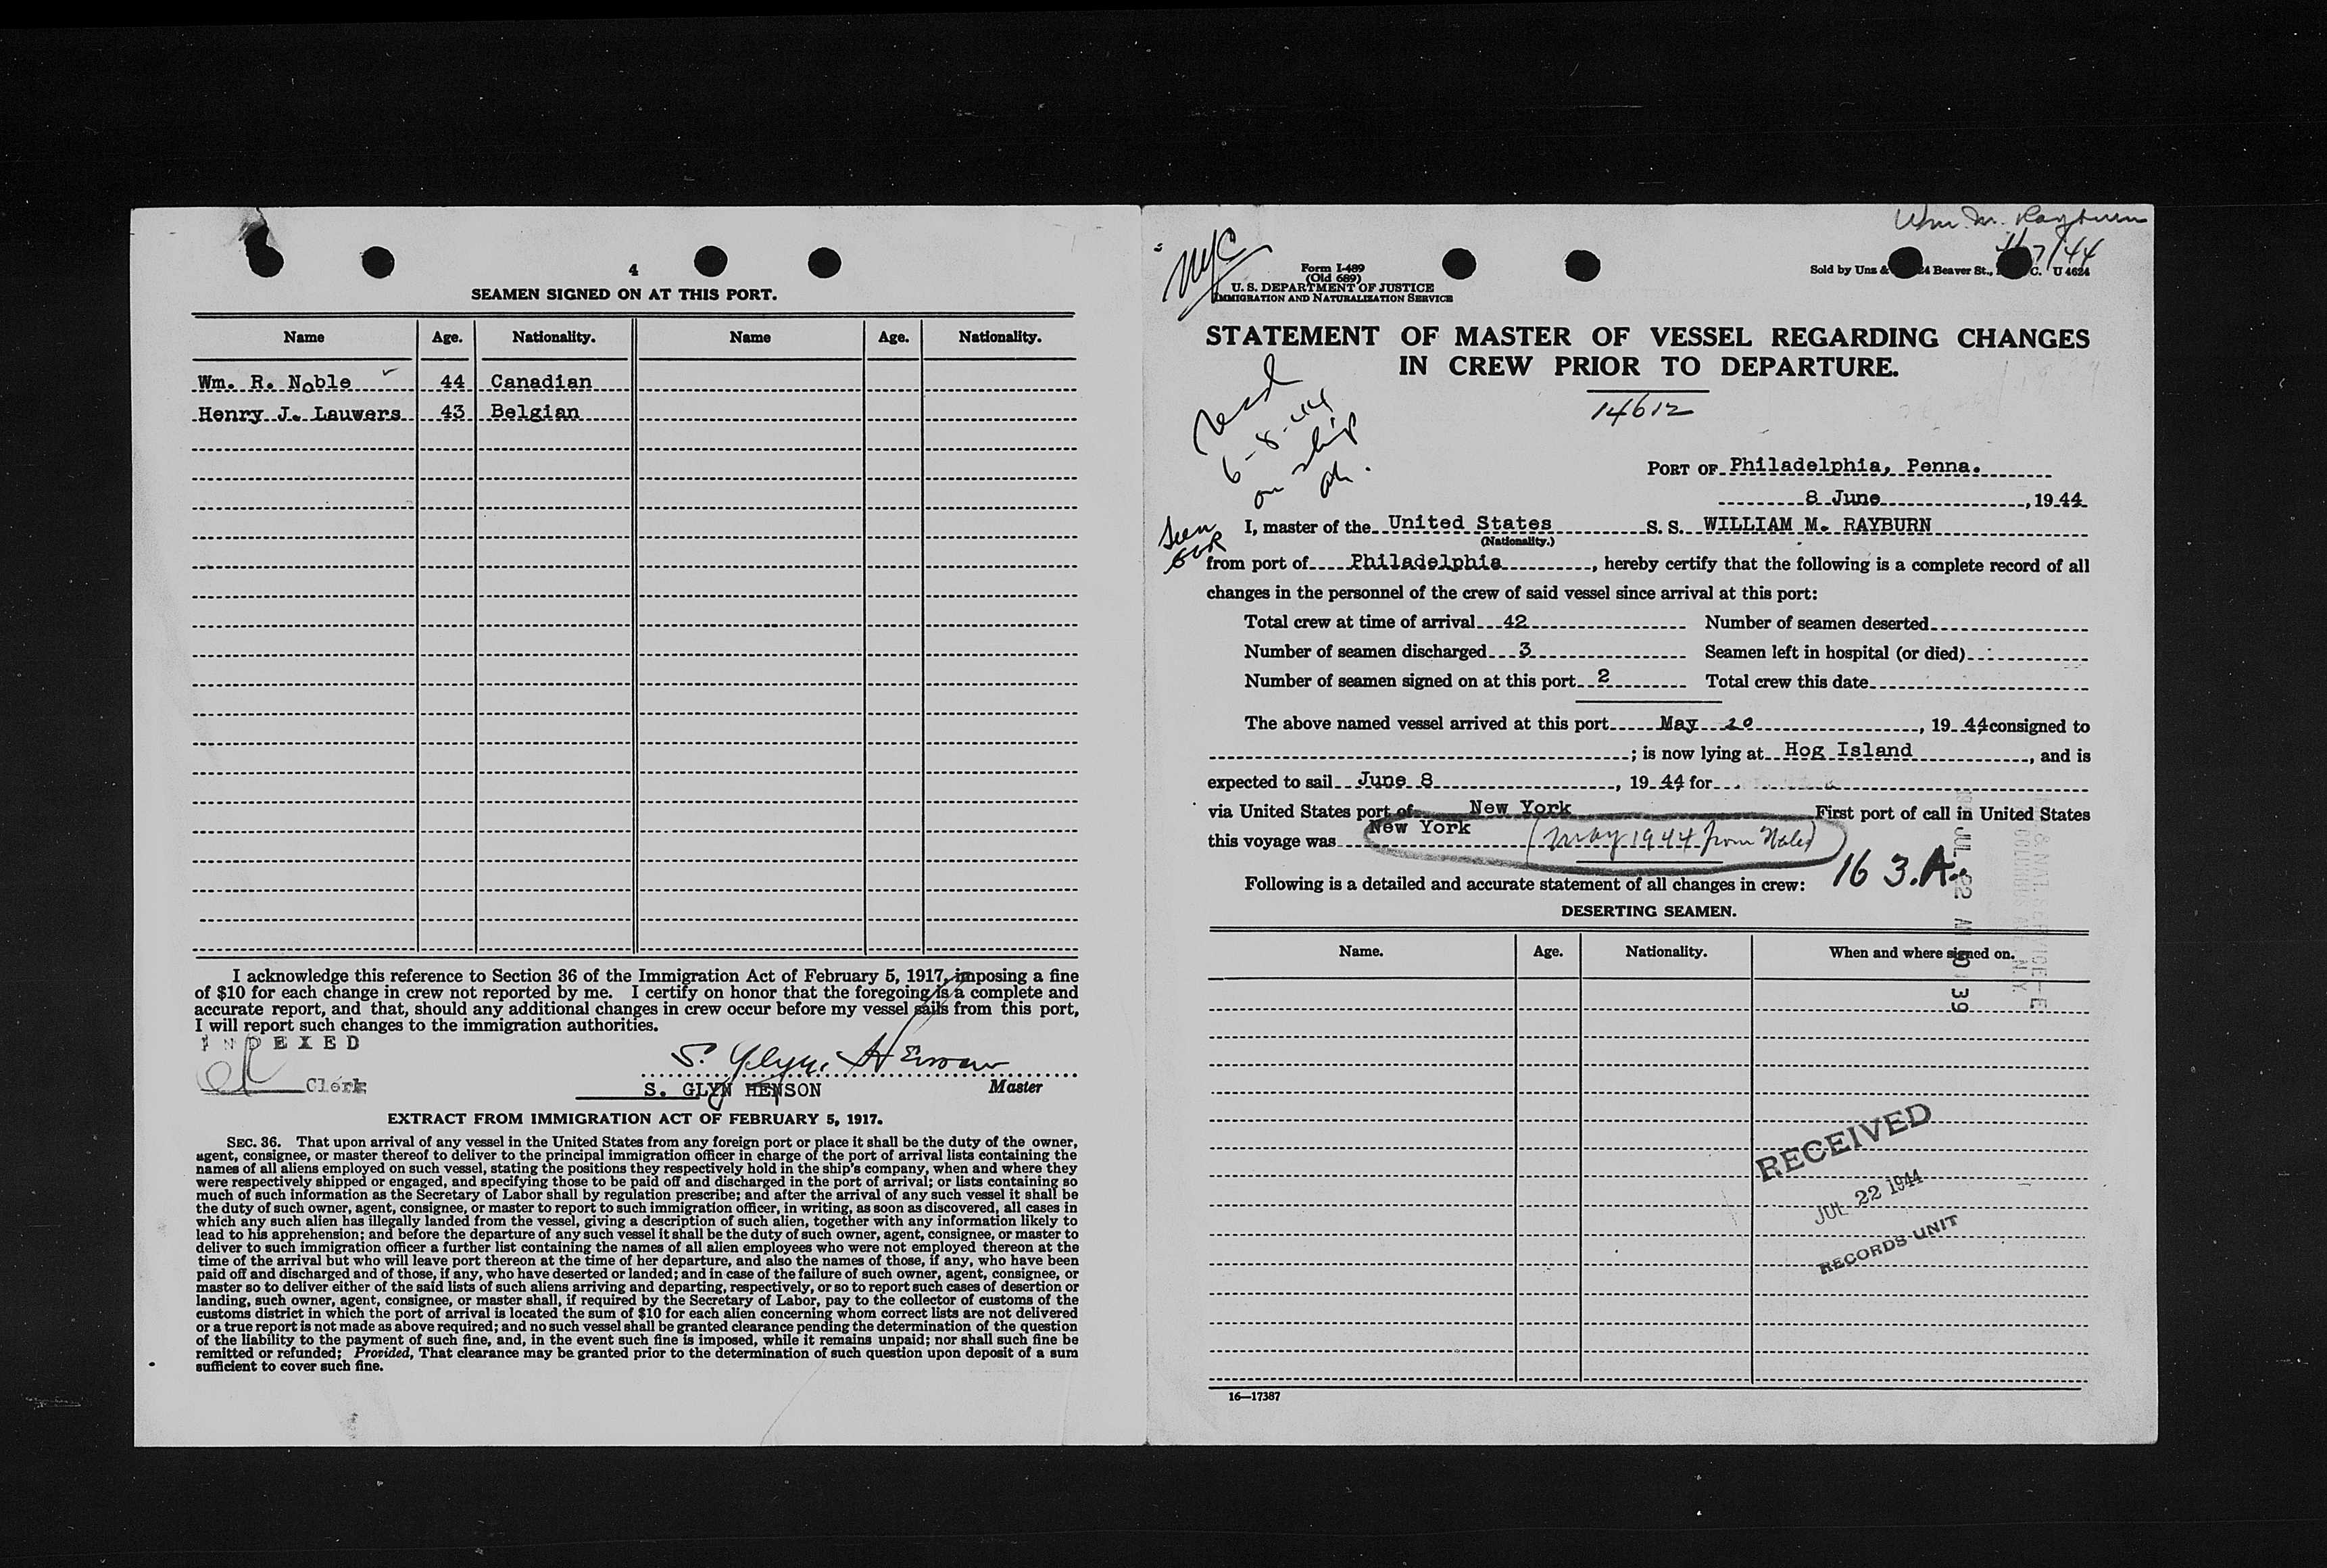 4
SEAMEN SIGNED ON AT THIS PORT.
Name Age. Nationality. Name Age. Nationality.
Wm. R. Noble 44 Canadian
Henry J. Lauwers 43 Belgian
I acknowledge this reference to Section 36 of the Immigration Act of February 5, 1917, imposing a fine
of $10 for each change in crew not reported by me. I certify on honor that the foregoing is a complete and
accurate report, and that, should any additional changes in crew occur before my vessel sails from this port,
I will report such changes to the immigration authorities.
INDEXED
Clerk
S. Glyn Henson
S. GLYN HENSON Master
EXTRACT FROM IMMIGRATION ACT OF FEBRUARY 5, 1917.
SEC. 36. That upon arrival of any vessel in the United States from any foreign port or place it shall be the duty of the owner,
agent, consignee, or master thereof to deliver to the principal immigration officer in charge of the port of arrival lists containing the
names of all aliens employed on such vessel, stating the positions they respectively hold in the ship's company, when and where they
were respectively shipped or engaged, and specifying those to be paid off and discharged in the port of arrival; or lists containing so
much of such information as the Secretary of Labor shall by regulation prescribe; and after the arrival of any such vessel it shall be
the duty of such owner, agent, consignee, or master to report to such immigration officer, in writing, as soon as discovered, all cases in
which any such alien has illegally landed from the vessel, giving a description of such alien, together with any information likely to
lead to his apprehension; and before the departure of any such vessel it shall be the duty of such owner, agent, consignee, or master to
deliver to such immigration officer a further list containing the names of all alien employees who were not employed thereon at the
time of the arrival but who will leave port thereon at the time of her departure, and also the names of those, if any, who have been
paid off and discharged and of those, if any, who have deserted or landed; and in case of the failure of such owner, agent, consignee, or
master so to deliver either of the said lists of such aliens arriving and departing, respectively, or so to report such cases of desertion or
landing, such owner, agent, consignee, or master shall, if required by the Secretary of Labor, pay to the collector of customs of the
customs district in which the port of arrival is located the sum of $10 for each alien concerning whom correct lists are not delivered
or a true report is not made as above required; and no such vessel shall be granted clearance pending the determination of the question
of the liability to the payment of such fine, and, in the event such fine is imposed, while it remains unpaid; nor shall such fine be
remitted or refunded; Provided, That clearance may be granted prior to the determination of such question upon deposit of a sum
sufficient to cover such fine.
Wm. M. Rayburn
7/44
NYC
Form I-489
(Old 689)
U. S. DEPARTMENT OF JUSTICE
IMMIGRATION AND NATURALIZATION SERVICE
Sold by Unz & 24 Beaver St., C. U 4624
STATEMENT OF MASTER OF VESSEL REGARDING CHANGES
IN CREW PRIOR TO DEPARTURE.
14612
Recd
6-8-44
on ship
PORT OF Philadelphia, Penna.
8 June, 1944
Seen
I, master of the United States S. S. WILLIAM M. RAYBURN
(Nationality.)
from port of Philadelphia, hereby certify that the following is a complete record of all
changes in the personnel of the crew of said vessel since arrival at this port:
Total crew at time of arrival 42 Number of seamen deserted
Number of seamen discharged 3 Seamen left in hospital (or died)
Number of seamen signed on at this port 2 Total crew this date
The above named vessel arrived at this port May 20, 1944 consigned to
; is now lying at Hog Island, and is
expected to sail June 8, 1944 for
via United States port of New York First port of call in United States
this voyage was New York (May 1944 from Wales)
163.A.
Following is a detailed and accurate statement of all changes in crew:
DESERTING SEAMEN.
Name. Age. Nationality. When and where signed on.
JUL 22 39
RECEIVED
JUL 22 1944
RECORDS UNIT
16—17387